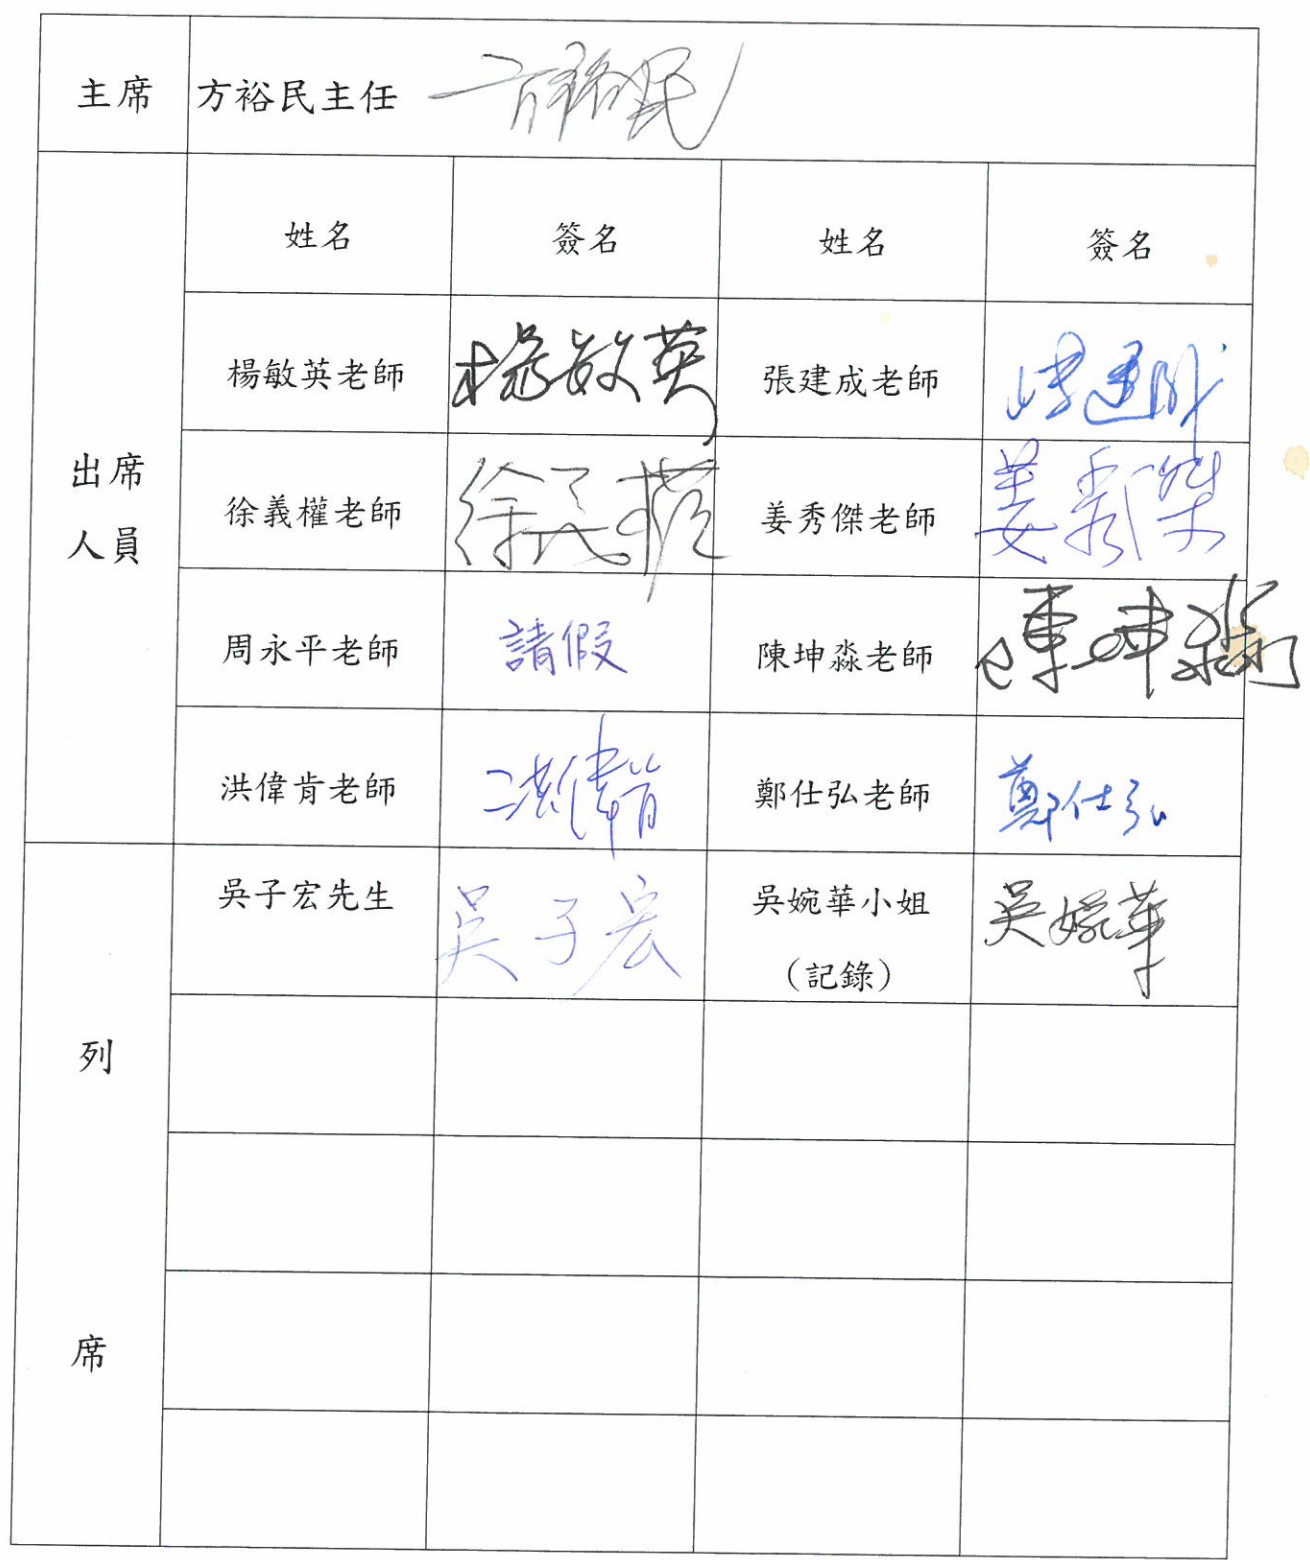 主席 方裕民主任 方裕民
出席人員 姓名 簽名 姓名 簽名
楊敏英老師 楊敏英 張建成老師 張建成
徐義權老師 徐義權 姜秀傑老師 姜秀傑
周永平老師 請假 陳坤淼老師 陳坤淼
洪偉肯老師 洪偉肯 鄭仕弘老師 鄭仕弘
列席 吳子宏先生 吳子宏 吳婉華小姐 吳婉華
（記錄）